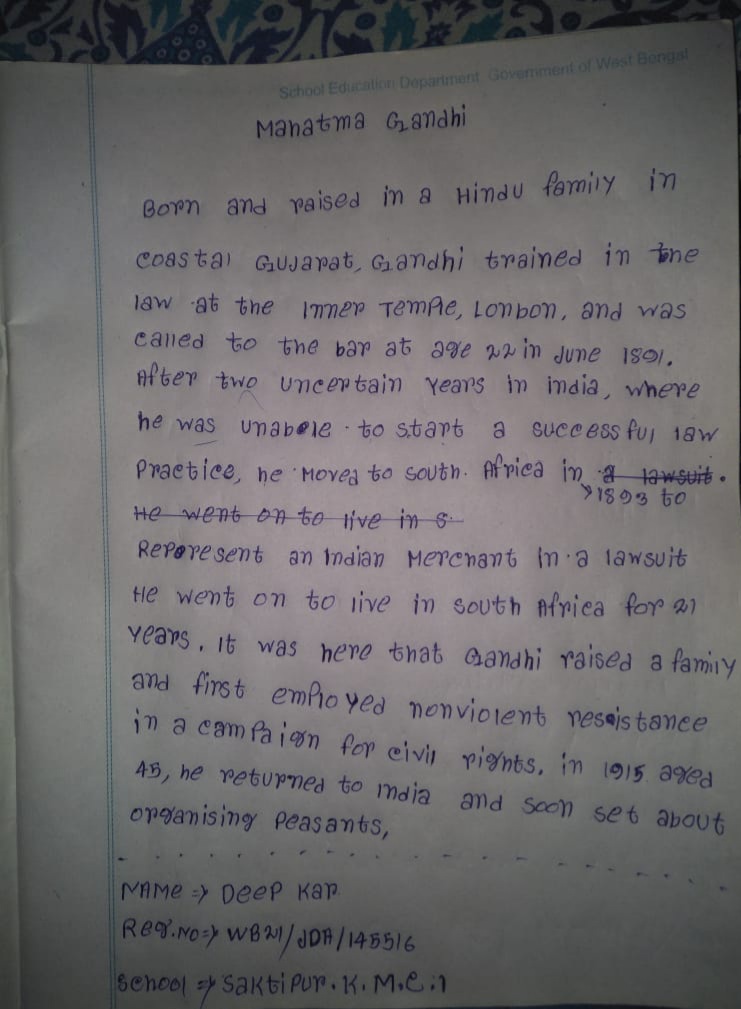 School Education Department Government of West Bengal
Mahatma Gandhi
Born and raised in a Hindu family in
coastal Gujarat, Gandhi trained in the
law at the Inner Temple, Lonbon, and was
called to the bar at age 22 in June 1891.
After two uncertain years in india, where
he was unabele to start a successful law
practice, he moved to south. Africa in a lawsuit.
1893 to
He went on to live in S.
Reporesent an Indian Merchant in a lawsuit
He went on to live in south Africa for 21
years. it was here that Gandhi raised a family
and first employed nonviolent resistance
in a campaign for civil rights. in 1915 aged
45, he returned to india and soon set about
organising peasants,
NAMe => Deep Kar
Reg.No=> WB21/JDA/145516
School => Saktipur. K. M. C. I